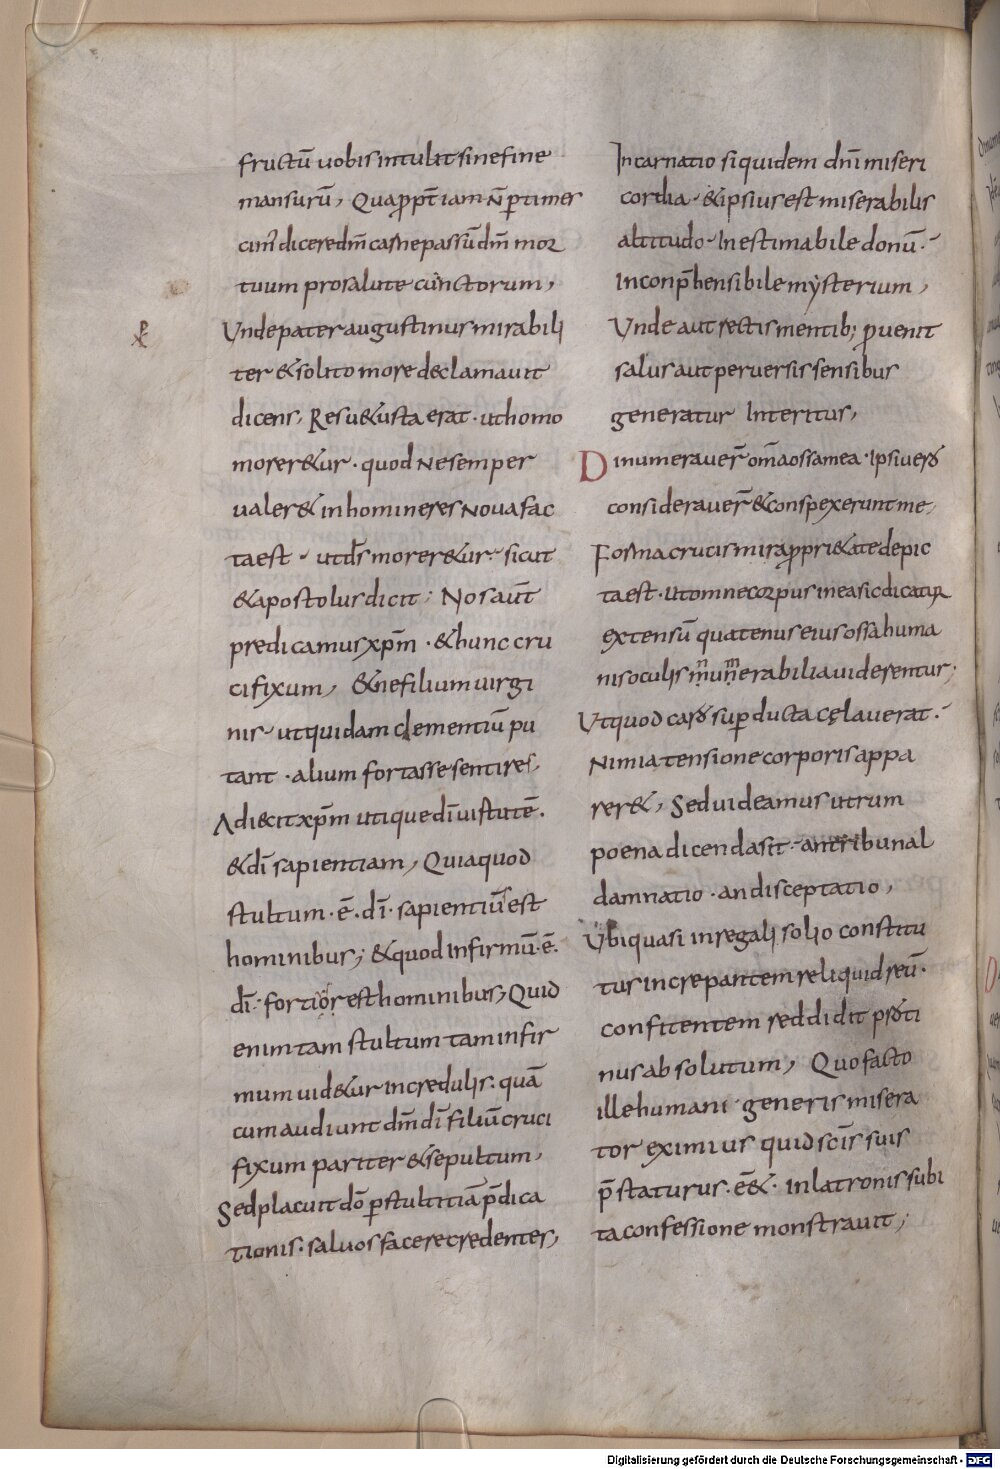 fructū uobis intulit sine fine
mansurū, Quapropt̄ iam n̄ ꝑtimes
cim̄ dicere dm̄ carne passū dm̄ mor
tuum pro salute cunctorum,
Unde pater augustinus mirabili
ter & solito more declamauit
dicens, Res uetusta erat · ut homo
morer&ur · quod ne semper
ualer& in homine res noua fac
ta est · ut d̄s morer&ur · sicut
& apostolus dicit; Nos aūt
predicamus xp̄m · & hunc cru
cifixum, & ne filium uirgi
nis · ut quidam clementiū pu
tant · alium fortasse sentires,
Adiecit xp̄m utique dī uirtutē.
& dī sapientiam, Quia quod
stultum · ē · dī · sapientius est
hominibus; & quod infirmū · ē ·
dī · fortior est hominibus, Quid
enim tam stultum tam infir
mum uid&ur incredulis · quā
cum audiunt dm̄ dī filiū cruci
fixum pariter & sepultum,
Sed placuit dō ꝑ stultitiā p̄dica
tionis · saluos facere credentes,
Incarnatio siquidem dn̄i miseri
cordia · & ipsius est miserabilis
altitudo · Inestimabile donū ·
Inconp̄hensibile mysterium,
Unde aut rectis mentib; ꝓuenit
salus aut peruersis sensibus
generatur Interitus,
Dinumerauer̄ om̄a ossa mea · Ipsi uero
considerauer̄ & conspexerunt me,
Forma crucis mira propri&ate depic
ta est · ut omne corpus in ea sic dicatur
extensū quatenus eius ossa huma
nis oculis innumerabilia uiderentur;
Ut quod caro suꝑducta cęlauerat ·
Nimia tensione corporis appa
rer&, Sed uideamus utrum
poena dicenda sit · an tribunal
damnatio · an disceptatio,
Ubi quasi in regali solio constitu
tus increpantem reliquid reū ·
confitentem reddidit proti
nus absolutum, Quo facto
ille humani generis misera
tor eximius quid sc̄is suis
p̄staturus · ē& · in latronis subi
ta confessione monstrauit;
Digitalisierung gefördert durch die Deutsche Forschungsgemeinschaft - DFG